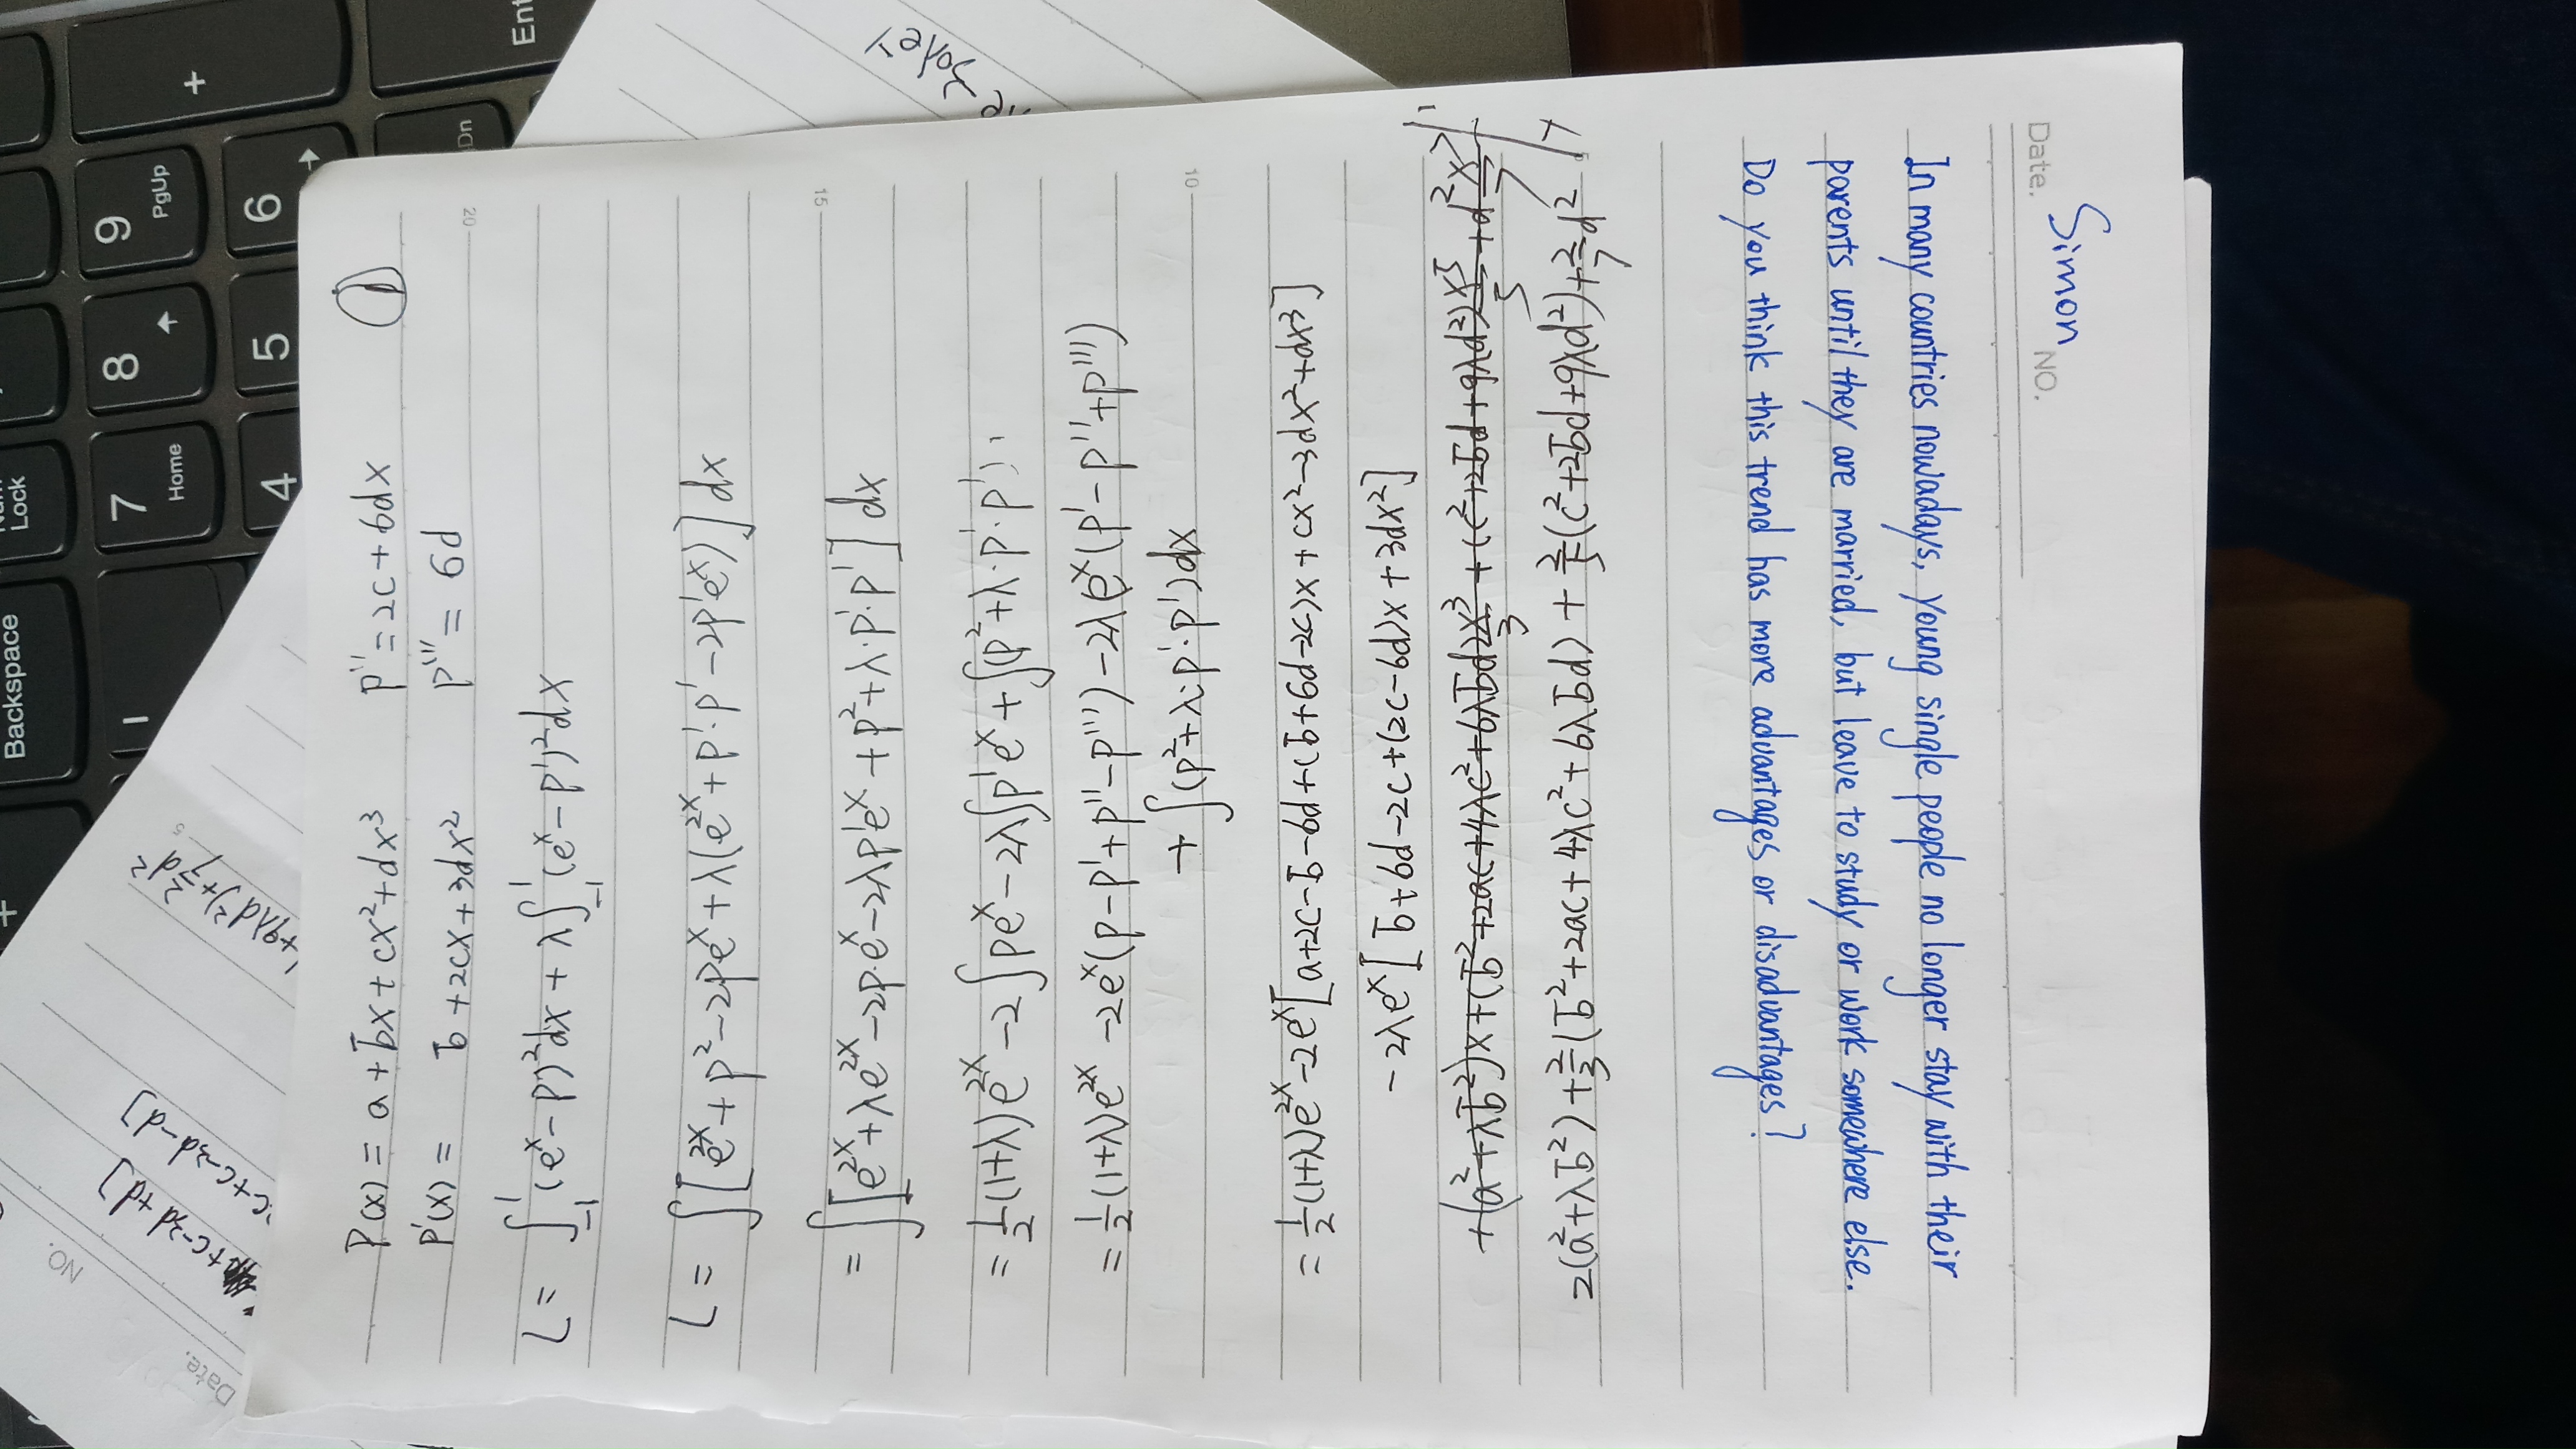 Backspace
Num
Lock
7
Home
8
9
PgUp
+
4
5
6
Dn
Ent
NO.
Date.
+c-3d+d]
c+c-3d-d]
+9λd²)+2/7d²
5
P(x) = a+bx+cx²+dx³ p''=2c+6dx ①
P'(x) = b+2cx+3dx² p'''= 6d
20
L= ∫₋₁¹(eˣ-p)²dx+λ∫₋₁¹(eˣ-p')²dx
L= ∫[e²ˣ+p²-2peˣ+λ(e²ˣ+p'·p'-2p'eˣ)]dx
15
=∫[e²ˣ+λe²ˣ-2p·eˣ-2λp'eˣ+p²+λ·p'·p']dx
=1/2(1+λ)e²ˣ-2∫peˣ-2λ∫p'eˣ+∫(p²+λ·p'·p')
=1/2(1+λ)e²ˣ-2eˣ(p-p'+p''-p''')-2λeˣ(p'-p''+p''')
+∫(p²+λ·p'·p')dx
10
=1/2(1+λ)e²ˣ-2eˣ[a+2c-b-6d+(b+6d-2c)x+cx²-3dx²+dx³]
-2λeˣ[b+6d-2c+(2c-6d)x+3dx²]
+(a²+λb²)x+(b²+2ac+4λc²+6λbd)x³/3+(c²+2bd+9λd²)x⁵/5+d²x⁷/7
2(a²+λb²)+2/3(b²+2ac+4λc²+6λbd)+2/5(c²+2bd+9λd²)+2/7d²
Date.
NO.
Simon
In many countries nowadays, young single people no longer stay with their
parents until they are married, but leave to study or work somewhere else.
Do you think this trend has more advantages or disadvantages?